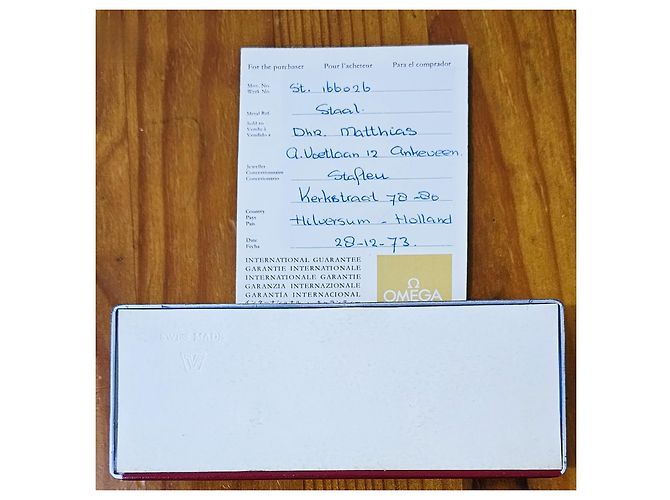 For the purchaser Pour l'acheteur Para el comprador
Mov. No.
Werk No.
St. 166026
Metal Ref.
Staal.
Sold to
Vendu à
Vendido a
Dhr. Matthias
A. Voetlaan 12 Ankeveen.
Jeweller
Concessionnaire
Concesionario
Stafleu
Kerkstraat 78-80
Country
Pays
País
Hilversum - Holland
Date
Fecha
28-12-73.
INTERNATIONAL GUARANTEE
GARANTIE INTERNATIONALE
INTERNATIONALE GARANTIE
GARANZIA INTERNAZIONALE
GARANTÍA INTERNACIONAL
Ω
OMEGA
SWISS MADE